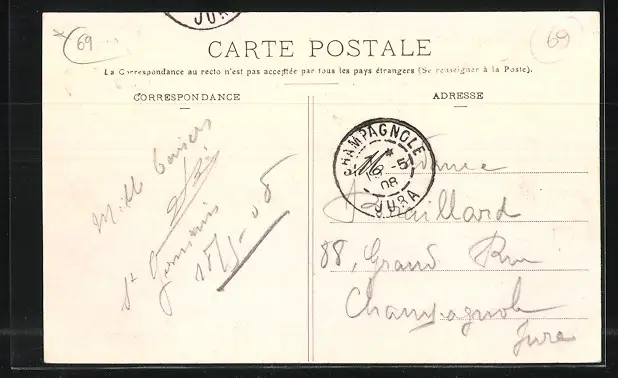 JURA
69
69
CARTE POSTALE
La Correspondance au recto n'est pas acceptée par tous les pays étrangers (Se renseigner à la Poste).
CORRESPONDANCE
Mille baisers
St Germain
ADRESSE
CHAMPAGNOLE
08
JURA
88, Grand Rue
Champagnole
Jura